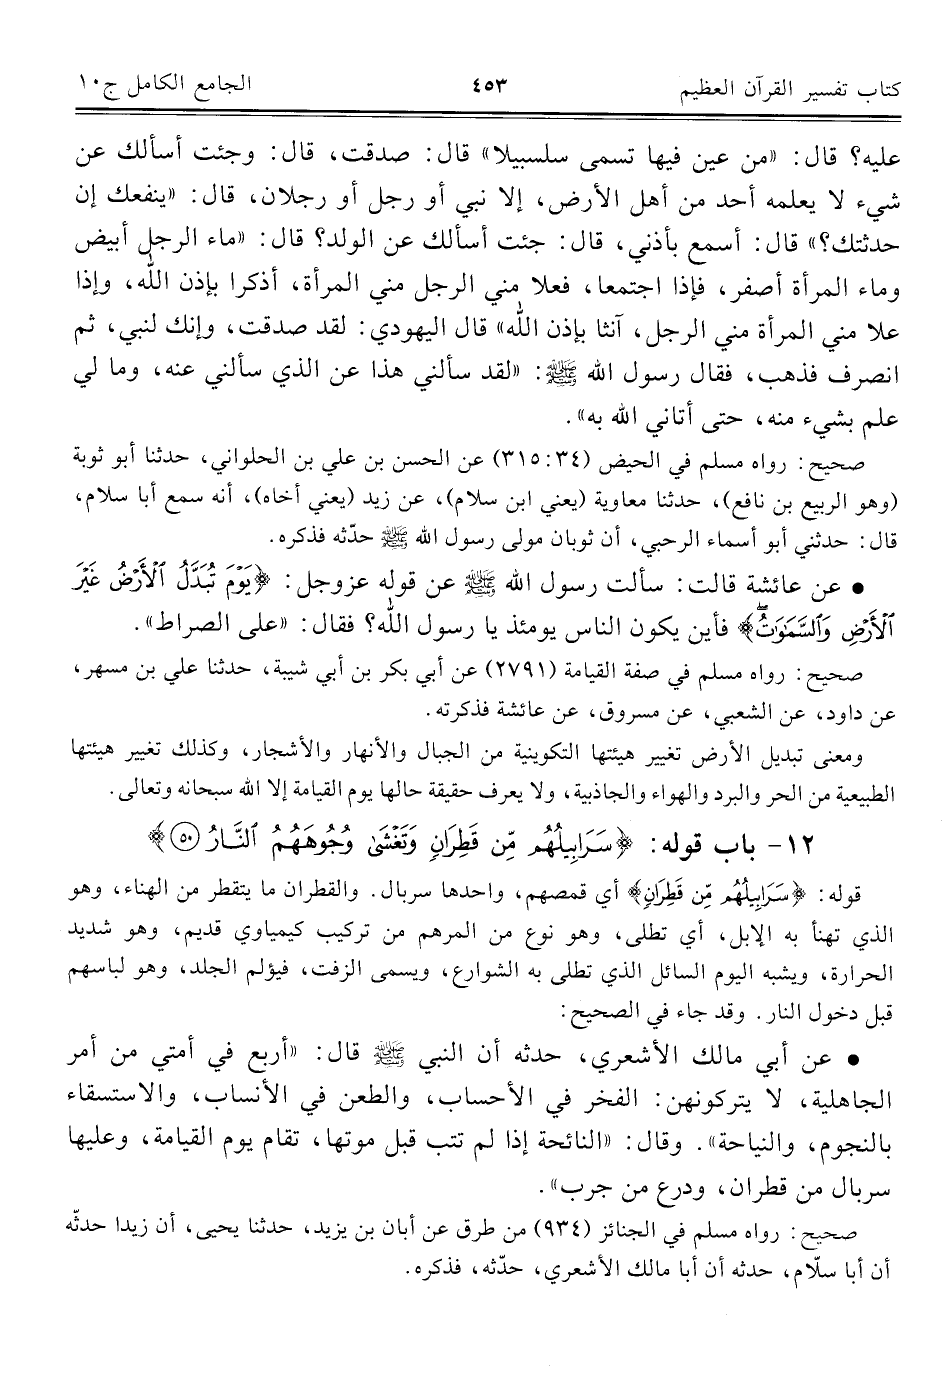 كتاب تفسير القرآن العظيم ٤٥٣ الجامع الكامل ج١٠
عليه؟ قال: «من عين فيها تسمى سلسبيلا» قال: صدقت، قال: وجئت أسألك عن
شيء لا يعلمه أحد من أهل الأرض، إلا نبي أو رجل أو رجلان، قال: «ينفعك إن
حدثتك؟» قال: أسمع بأذني، قال: جئت أسألك عن الولد؟ قال: «ماء الرجل أبيض
وماء المرأة أصفر، فإذا اجتمعا، فعلا مني الرجل مني المرأة، أذكرا بإذن الله، وإذا
علا مني المرأة مني الرجل، آنثا بإذن الله» قال اليهودي: لقد صدقت، وإنك لنبي، ثم
انصرف فذهب، فقال رسول الله ﷺ: «لقد سألني هذا عن الذي سألني عنه، وما لي
علم بشيء منه، حتى أتاني الله به».
صحيح: رواه مسلم في الحيض (٣١٥:٣٤) عن الحسن بن علي بن الحلواني، حدثنا أبو ثوبة
(وهو الربيع بن نافع)، حدثنا معاوية (يعني ابن سلام)، عن زيد (يعني أخاه)، أنه سمع أبا سلام،
قال: حدثني أبو أسماء الرحبي، أن ثوبان مولى رسول الله ﷺ حدّثه فذكره.
• عن عائشة قالت: سألت رسول الله ﷺ عن قوله عزوجل: ﴿يَوْمَ تُبَدَّلُ ٱلْأَرْضُ غَيْرَ
ٱلْأَرْضِ وَٱلسَّمَٰوَٰتُۖ﴾ فأين يكون الناس يومئذ يا رسول الله؟ فقال: «على الصراط».
صحيح: رواه مسلم في صفة القيامة (٢٧٩١) عن أبي بكر بن أبي شيبة، حدثنا علي بن مسهر،
عن داود، عن الشعبي، عن مسروق، عن عائشة فذكرته.
ومعنى تبديل الأرض تغيير هيئتها التكوينية من الجبال والأنهار والأشجار، وكذلك تغيير هيئتها
الطبيعية من الحر والبرد والهواء والجاذبية، ولا يعرف حقيقة حالها يوم القيامة إلا الله سبحانه وتعالى.
١٢- باب قوله: ﴿سَرَابِيلُهُم مِّن قَطِرَانٍ وَتَغْشَىٰ وُجُوهَهُمُ ٱلنَّارُ ٥٠﴾
قوله: ﴿سَرَابِيلُهُم مِّن قَطِرَانٍ﴾ أي قمصهم، واحدها سربال. والقطران ما يتقطر من الهناء، وهو
الذي تهنأ به الإبل، أي تطلى، وهو نوع من المرهم من تركيب كيمياوي قديم، وهو شديد
الحرارة، ويشبه اليوم السائل الذي تطلى به الشوارع، ويسمى الزفت، فيؤلم الجلد، وهو لباسهم
قبل دخول النار. وقد جاء في الصحيح:
• عن أبي مالك الأشعري، حدثه أن النبي ﷺ قال: «أربع في أمتي من أمر
الجاهلية، لا يتركونهن: الفخر في الأحساب، والطعن في الأنساب، والاستسقاء
بالنجوم، والنياحة». وقال: «النائحة إذا لم تتب قبل موتها، تقام يوم القيامة، وعليها
سربال من قطران، ودرع من جرب».
صحيح: رواه مسلم في الجنائز (٩٣٤) من طرق عن أبان بن يزيد، حدثنا يحيى، أن زيدا حدثّه
أن أبا سلّام، حدثه أن أبا مالك الأشعري، حدّثه، فذكره.